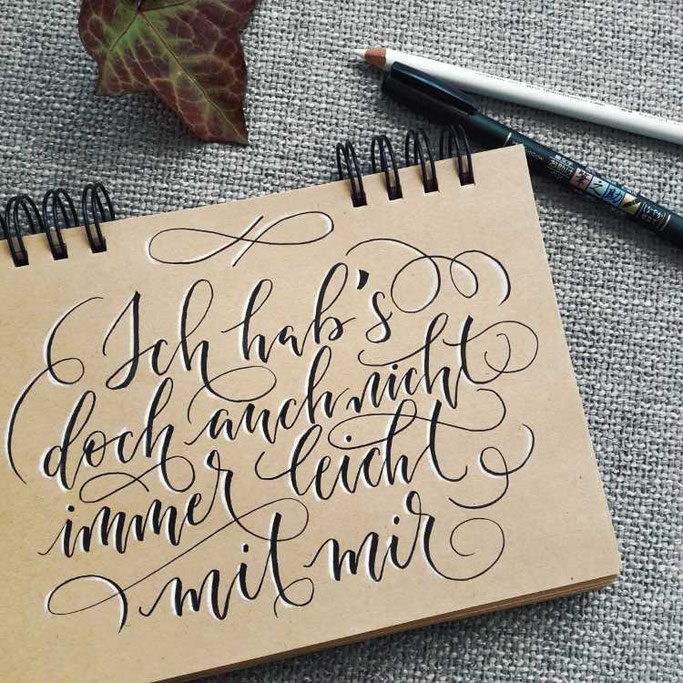 Ich hab's
doch auch nicht
immer leicht
mit mir